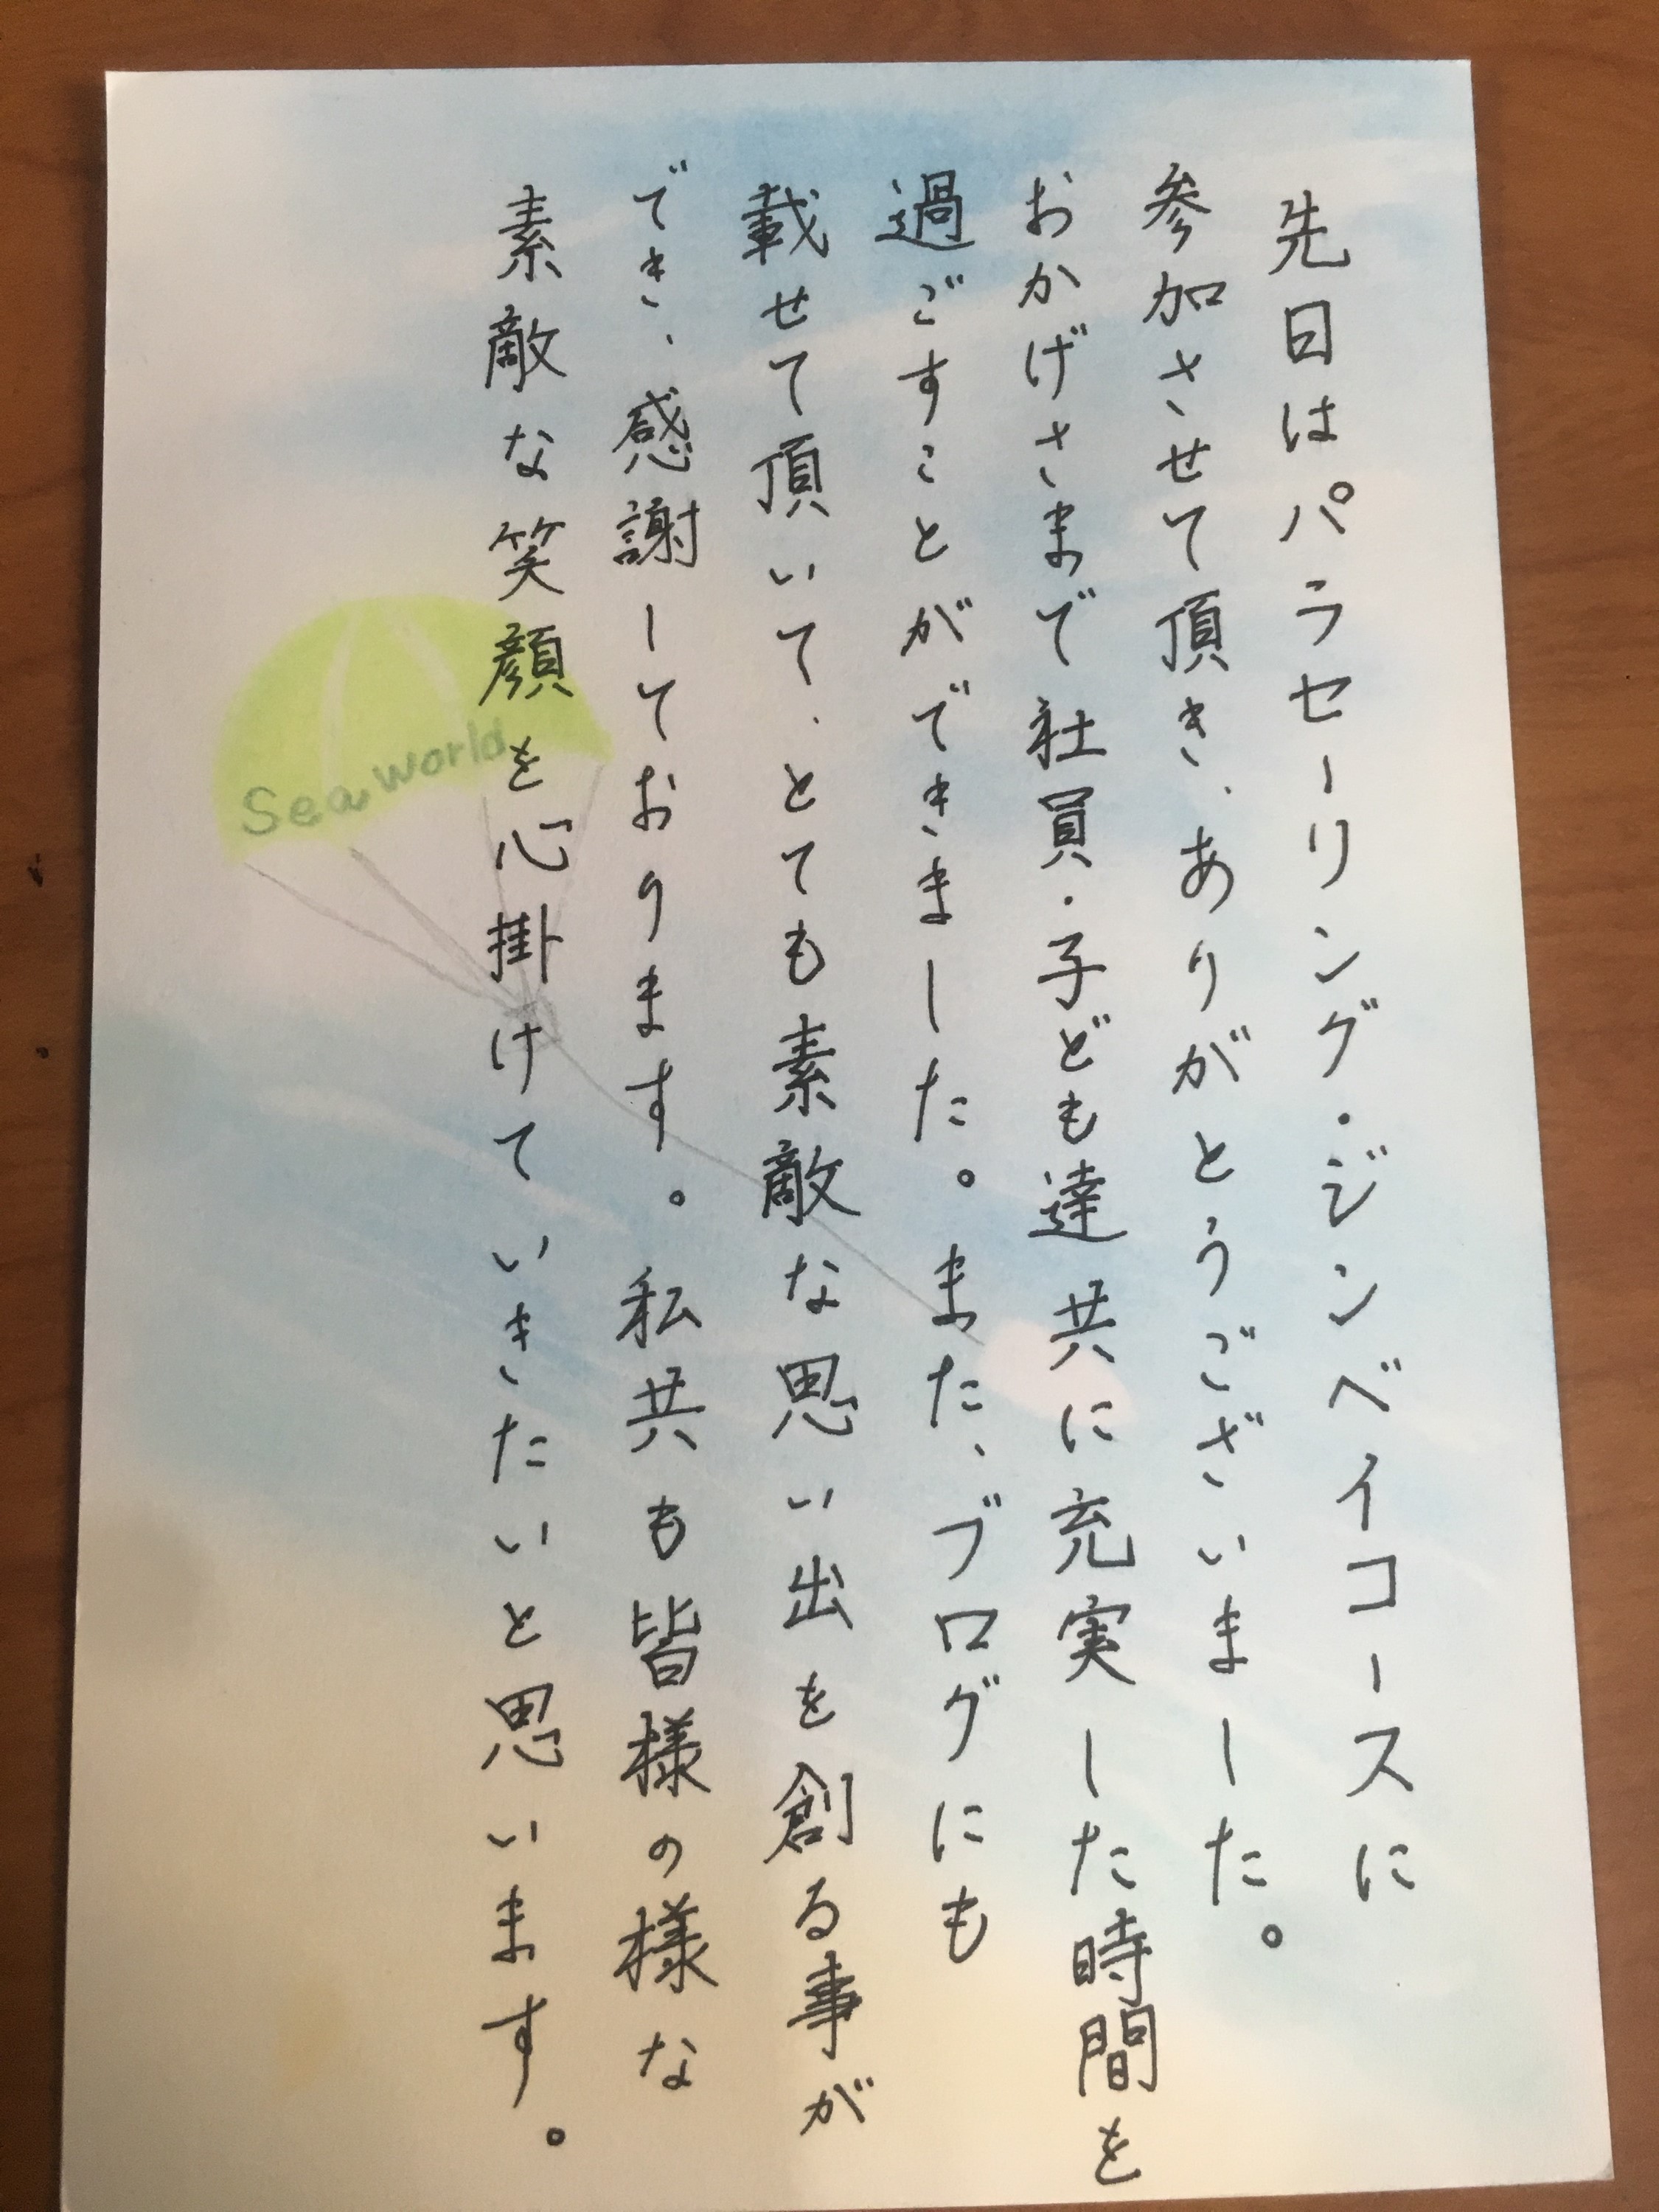 先日はパラセーリング・ジンベイコースに
参加させて頂き、ありがとうございました。
おかげさまで社員・子ども達共に充実した時間を
過ごすことができました。また、ブログにも
載せて頂いて、とても素敵な思い出を創る事が
でき、感謝しております。私共も皆様の様な
素敵な笑顔を心掛けていきたいと思います。
Sea world